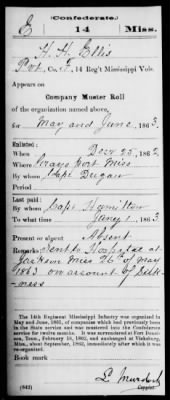 (Confederate.)
E 14 Miss.
H. H. Ellis
Pvt, Co. F, 14 Reg't Mississippi Vols.
Appears on
Company Muster Roll
of the organization named above,
for May and June, 1863.
Enlisted:
When Dec 25, 1862
Where Miss
By whom Capt Dugan
Period
Last paid:
By whom Capt Hamilton
To what time 1, 1863
Present or absent Absent
Remarks: Sent to Hospital at
Jackson Miss 26th of May
1863 on account of Sick-
ness
The 14th Regiment Mississippi Infantry was organized in
May and June, 1861, of companies which had previously been
in the State service and was mustered into the Confederate
service for twelve months. It was surrendered at Fort Donel-
son, Tenn., February 16, 1862, and exchanged at Vicksburg,
Miss., about September, 1862, immediately after which it was
re-organized.
Book mark
(642) Copyist.